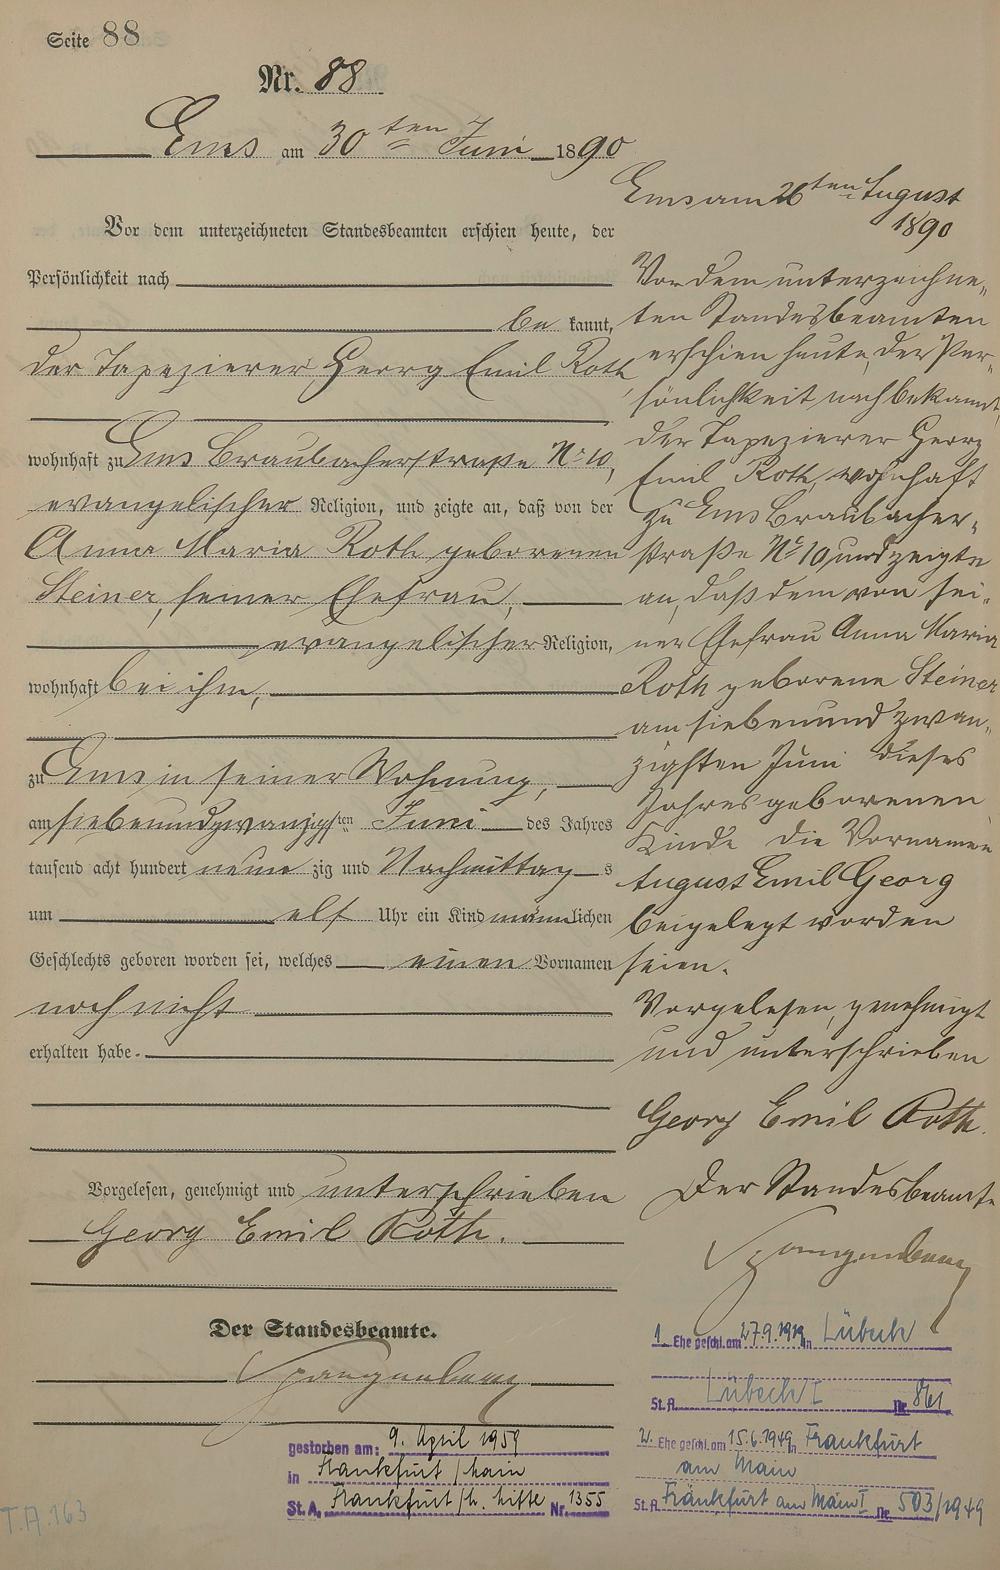 Seite 88
Nr. 88
Ems am 30ten Juni 1890
Vor dem unterzeichneten Standesbeamten erschien heute, der
Persönlichkeit nach
be kannt,
der Tapezierer Georg Emil Roth,
wohnhaft zu Ems Braubacherstraße No 10,
evangelischer Religion, und zeigte an, daß von der
Anna Maria Roth geborenen
Steiner, seiner Ehefrau,
evangelischer Religion,
wohnhaft bei ihm,
zu Ems in seiner Wohnung,
am siebenundzwanzigsten Juni des Jahres
tausend acht hundert neun zig und Nachmittag s
um elf Uhr ein Kind männlichen
Geschlechts geboren worden sei, welches einen Vornamen
noch nicht
erhalten habe.
Vorgelesen, genehmigt und unterschrieben
Georg Emil Roth.
Der Standesbeamte.
Spangenberg
gestorben am: 9. April 1959
in Frankfurt/Main
St.A. Frankfurt/M. Mitte Nr. 1355
T.A.163
Ems am 26ten August
1890
Vor dem unterzeichne-
ten Standesbeamten
erschien heute, der Per-
sönlichkeit nach bekannt,
der Tapezierer Georg
Emil Roth, wohnhaft
zu Ems Braubacher-
straße No 10, und zeigte
an, daß dem von sei-
ner Ehefrau Anna Maria
Roth geborene Steiner
am siebenundzwan-
zigsten Juni dieses
Jahres geborenen
Kinde die Vornamen
August Emil Georg
beigelegt worden
seien.
Vorgelesen, genehmigt
und unterschrieben
Georg Emil Roth.
Der Standesbeamte
Spangenberg
1. Ehe geschl. am 27.9.1919 in Lübeck
St.A. Lübeck I Nr. 861
2. Ehe geschl. am 15.6.1949 in Frankfurt
am Main
St.A. Frankfurt am Main I Nr. 503/1949